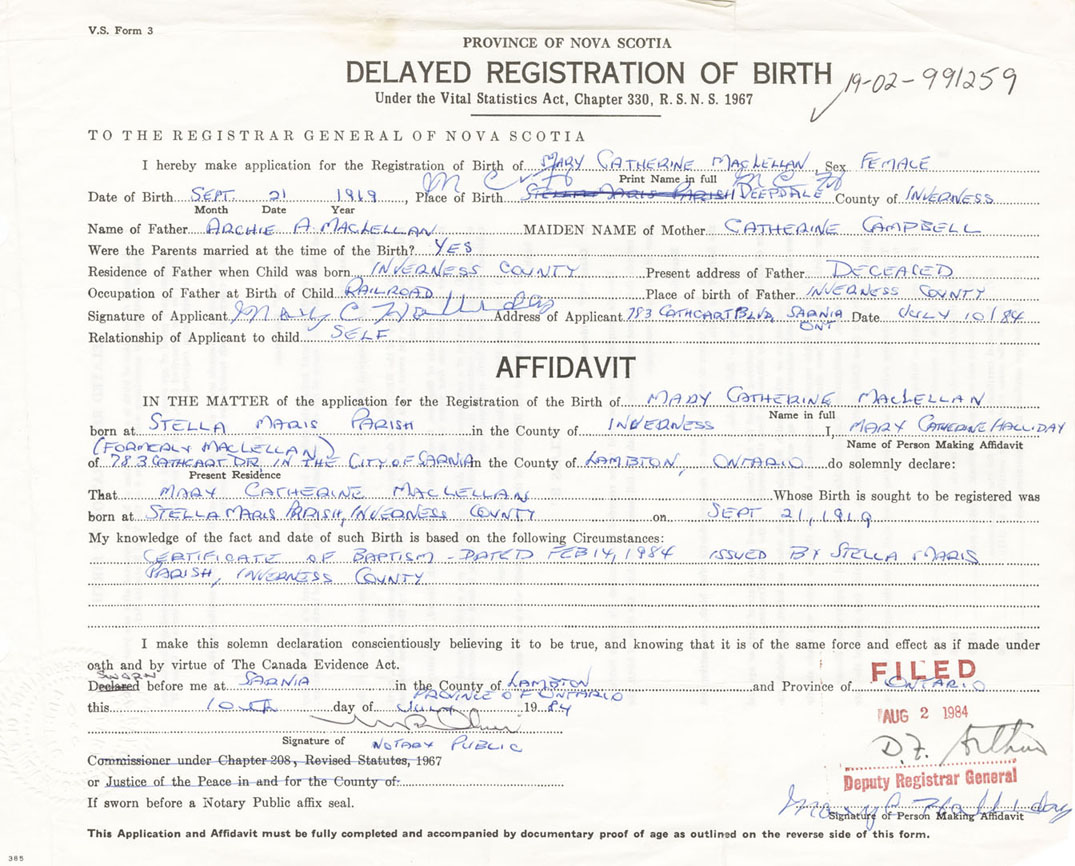 V.S. Form 3
PROVINCE OF NOVA SCOTIA
DELAYED REGISTRATION OF BIRTH
19-02-991259
Under the Vital Statistics Act, Chapter 330, R.S.N.S. 1967
TO THE REGISTRAR GENERAL OF NOVA SCOTIA
I hereby make application for the Registration of Birth of MARY CATHERINE MACLELLAN Sex FEMALE
Print Name in full
Date of Birth SEPT. 21 1919, Place of Birth STELLA MARIS PARISH DEEPDALE County of INVERNESS
Month Date Year
Name of Father ARCHIE A. MACLELLAN MAIDEN NAME of Mother CATHERINE CAMPBELL
Were the Parents married at the time of the Birth? YES
Residence of Father when Child was born INVERNESS COUNTY Present address of Father DECEASED
Occupation of Father at Birth of Child RAILROAD Place of birth of Father INVERNESS COUNTY
Signature of Applicant Mary C Halliday Address of Applicant 783 CATHCART BLVD. SARNIA ONT Date JULY 10/84
Relationship of Applicant to child SELF
AFFIDAVIT
IN THE MATTER of the application for the Registration of the Birth of MARY CATHERINE MACLELLAN
Name in full
born at STELLA MARIS PARISH in the County of INVERNESS I, MARY CATHERINE HALLIDAY
(FORMERLY MACLELLAN) Name of Person Making Affidavit
of 783 CATHCART DR IN THE CITY OF SARNIA in the County of LAMBTON, ONTARIO do solemnly declare:
Present Residence
That MARY CATHERINE MACLELLAN Whose Birth is sought to be registered was
born at STELLA MARIS PARISH, INVERNESS COUNTY on SEPT 21, 1919
My knowledge of the fact and date of such Birth is based on the following Circumstances:
CERTIFICATE OF BAPTISM - DATED FEB 14, 1984 ISSUED BY STELLA MARIS
PARISH, INVERNESS COUNTY
I make this solemn declaration conscientiously believing it to be true, and knowing that it is of the same force and effect as if made under
oath and by virtue of The Canada Evidence Act.
SWORN
Declared before me at SARNIA in the County of LAMBTON and Province of ONTARIO
FILED
PROVINCE OF ONTARIO
this 10th day of JULY 1984
AUG 2 1984
Signature of NOTARY PUBLIC
D.F. Arthur
Commissioner under Chapter 208, Revised Statutes, 1967
Deputy Registrar General
or Justice of the Peace in and for the County of
Mary C Halliday
If sworn before a Notary Public affix seal.
Signature of Person Making Affidavit
This Application and Affidavit must be fully completed and accompanied by documentary proof of age as outlined on the reverse side of this form.
385